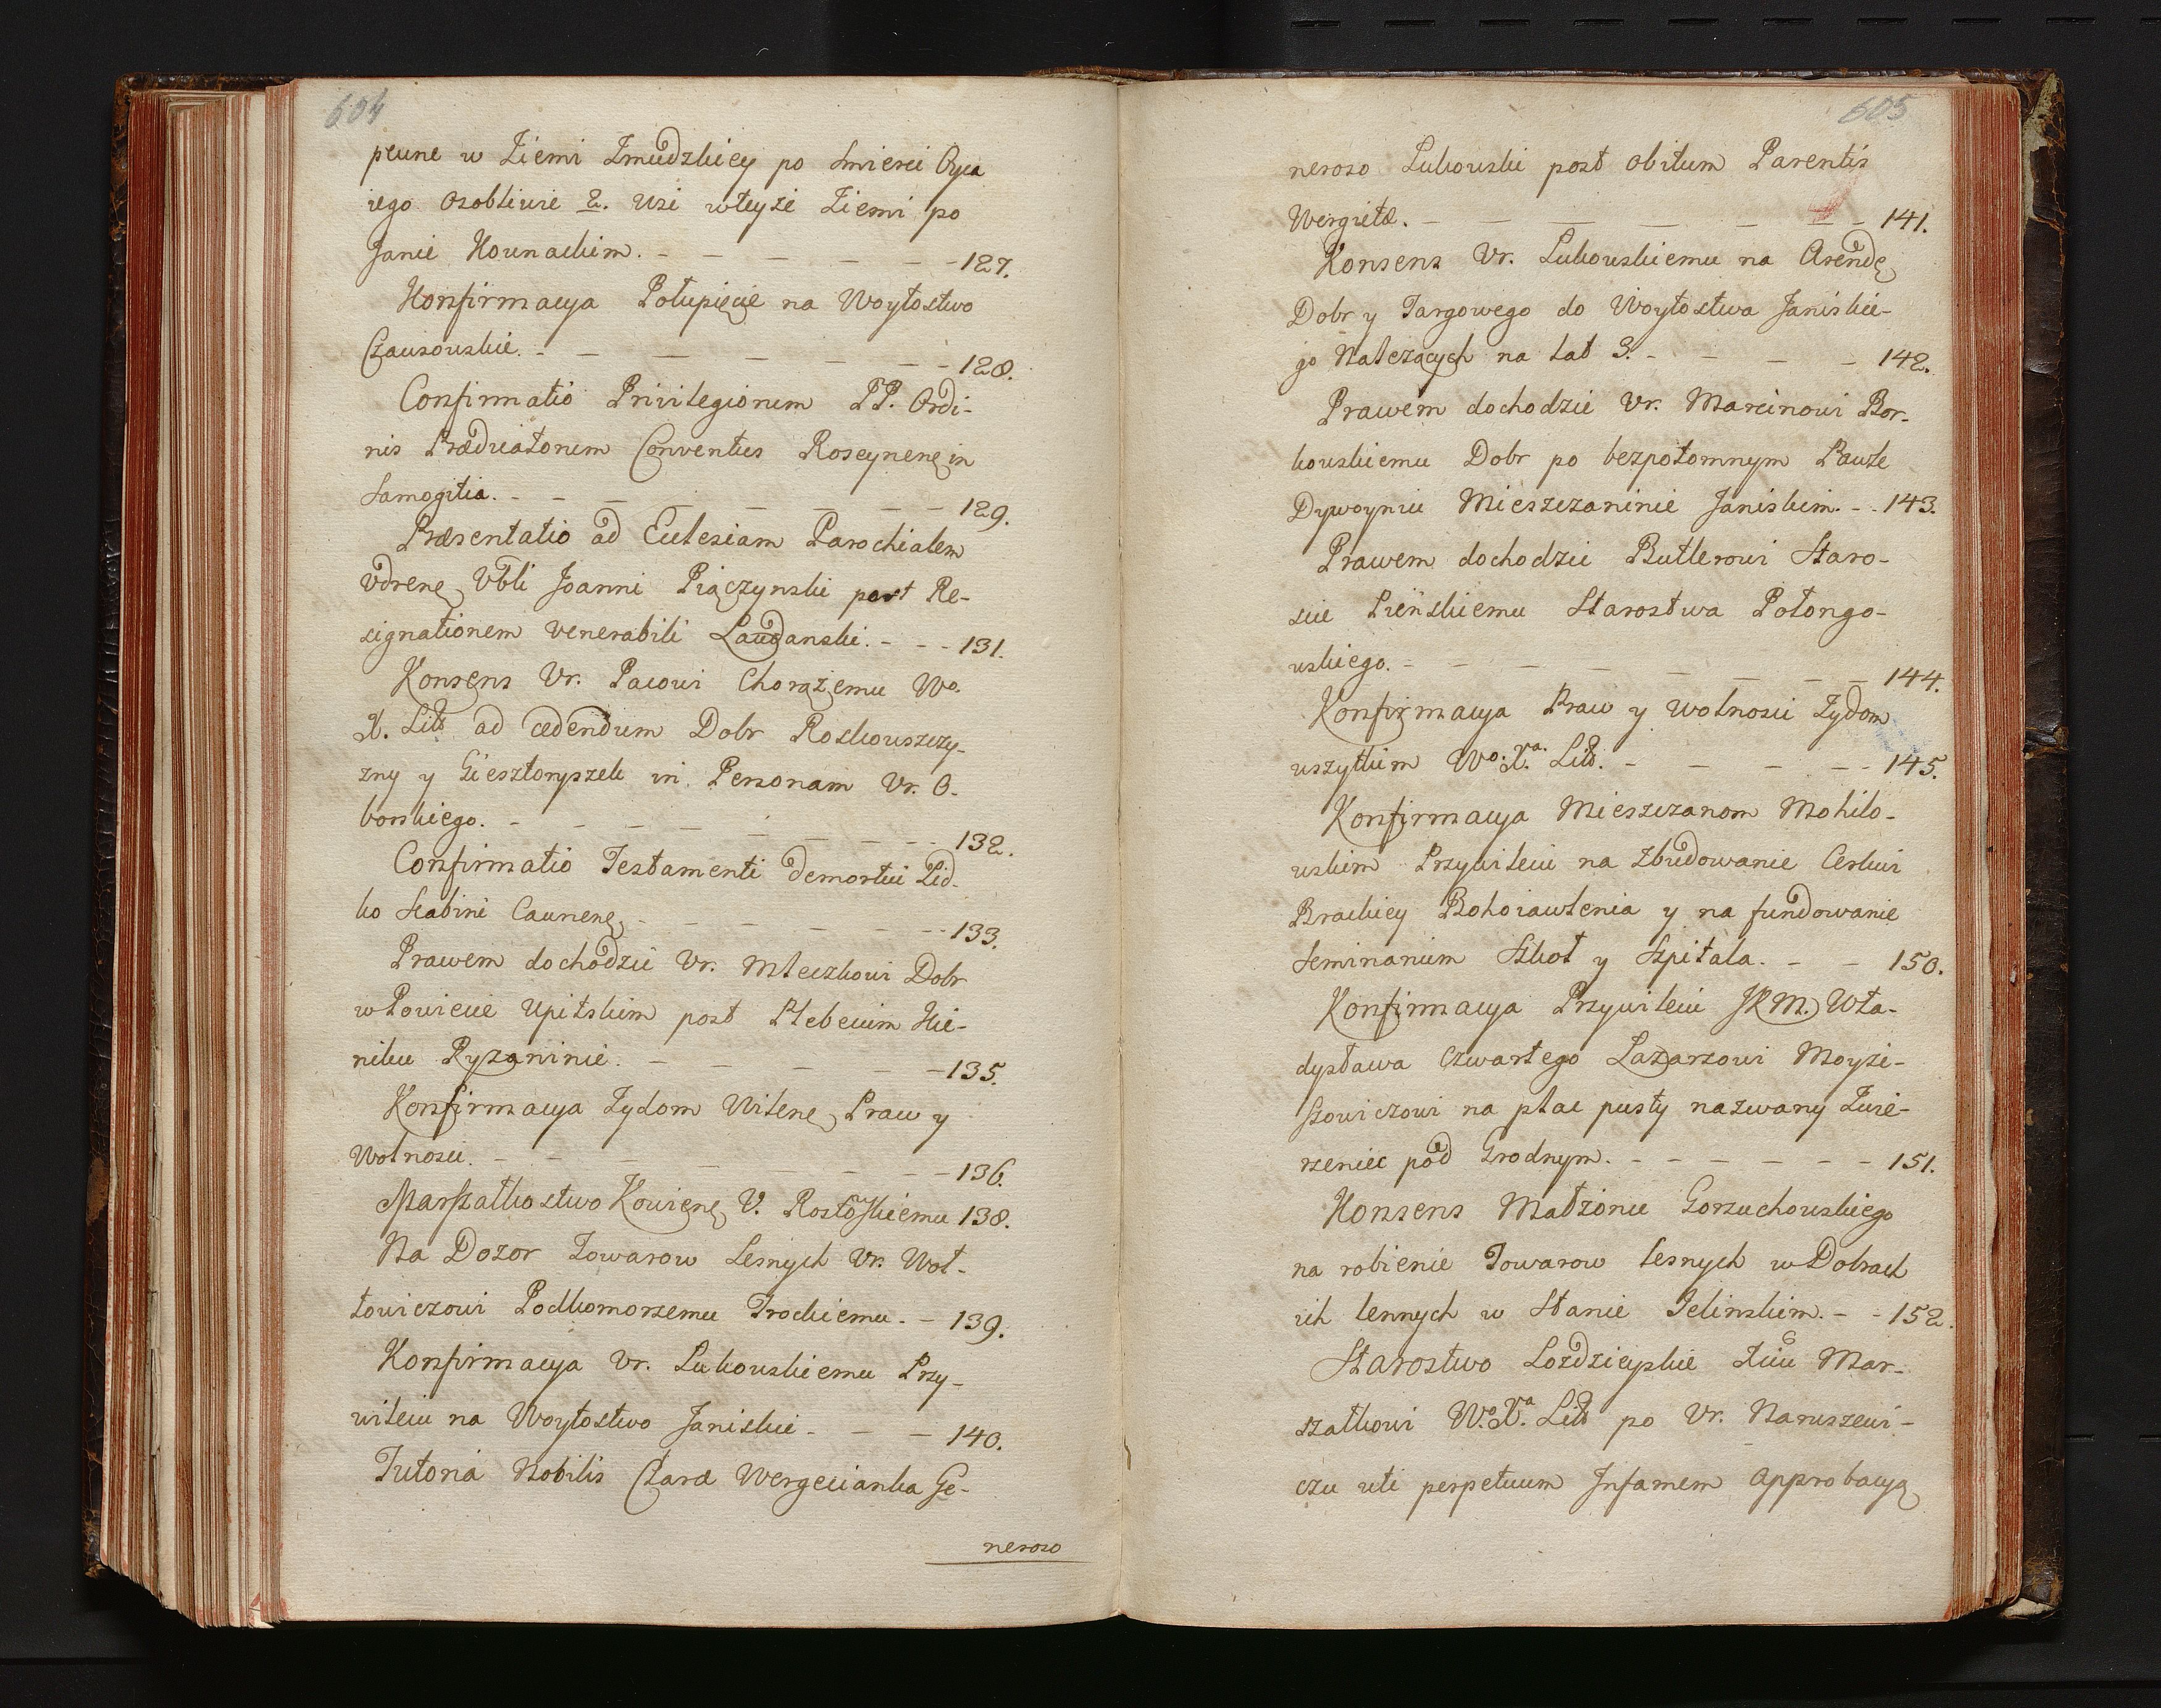 604
pewne w Ziemi Zmudzkiey po smierci Oyca
iego osobliwie 2. wsi wteyże Ziemi po
Janie Kownackim. - - - - - - 127.
Konfirmacya Połupięcie na Woytostwo
Czausowskie. - - - - - - - 128.
Confirmatio Privilegiorum PP. Ordi-
nis Prædicatorum Conventus Roseynen in
Samogitia. - - - - - - - 129.
Præsentatio ad Ecclesiam Parochialem
Vdrenę Vbli Joanni Piączynski post Re-
signationem Venerabili Laudanski. - - - 131.
Konsens Vr. Pacowi Chorążemu Wo.
X. Litt ad cedendum Dobr Roskowszczy-
zny y Giesztoryszek in Personam Vr. O-
borskiego. - - - - - - - - 132.
Confirmatio Testamenti demortui Pid-
ko Scabini Caunenę - - - - - - 133.
Prawem dochodzić Vr. Mleczkowi Dobr
w Powiecie Upitskim post Plebeium Hie-
niku Ryzaninie. - - - - - 135.
Konfirmacya Zydom Wilenę Praw y
Wolnosci. - - - - - - - 136.
Marszałkostwo Kowienę V. Rostoskiemu 138.
Na Dozor Towarow Lesnych Vr. Woł-
łowiczowi Podkomorzemu Trockiemu. - 139.
Konfirmacya Vr. Lukowskiemu Przy-
wileiu na Woytostwo Janiskie - - - 140.
Tutoria Nobilis Claræ Wergecianka Ge-
neroso
605
neroso Lukowski post obitum Parentis
Wergietæ. - - - - - - - 141.
Konsens Vr. Lukowskiemu na Arendę
Dobr y Targowego do Woytostwa Janiskie-
go Należących na lat 3. - - - - 142.
Prawem dochodzić Vr. Marcinowi Bor-
kowskiemu Dobr po bezpotomnym Pawle
Dywoyniu Mieszczaninie Janiskim. - - 143.
Prawem dochodzić Butlerowi Staro-
scie Prenskiemu Starostwa Połongo-
wskiego. - - - - - - - - 144.
Konfirmacya Praw y wolnosci Zydom
wszytkim Wo. Xa. Litt. - - - - - 145.
Konfirmacya Mieszczanom Mohilo-
wskim Przywileiu na Zbudowanie Cerkwi
Brackiey Bohoiawlenia y na fundowanie
Seminarium Szkoł y Szpitala. - - 150.
Konfirmacya Przywileiu JKM. Wła-
dysława Czwartego Lazarzowi Moyże-
szowiczowi na plac pusty nazwany Zwie-
rzeniec pod Grodnym. - - - - - - 151.
Konsens Małżonce Gorzuchowskiego
na robienie Towarow lesnych w Dobrach
ich lennych w Stanie Jelinskim. - - 152.
Starostwo Lozdzieyskie Xciu Mar-
szałkowi W. Xa. Litt po Vr. Naruszewi-
czu uti perpetuum Infamem Approbacyą